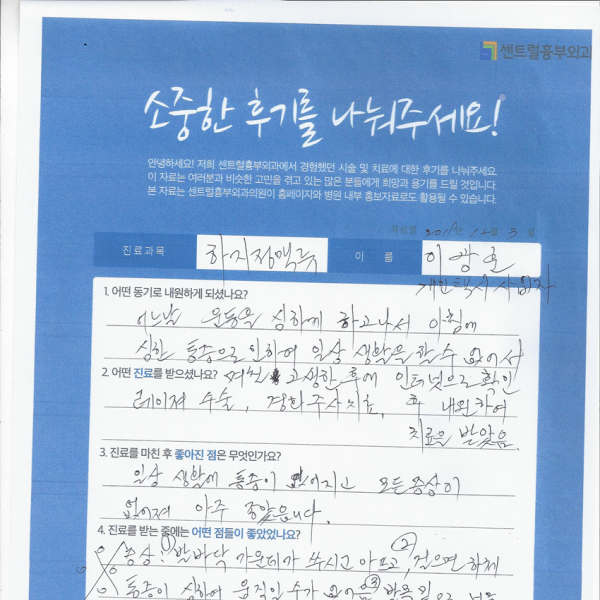 센트럴흉부외과
소중한 후기를 나눠주세요!
안녕하세요! 저희 센트럴흉부외과에서 경험했던 시술 및 치료에 대한 후기를 나눠주세요.
이 자료는 여러분과 비슷한 고민을 겪고 있는 많은 분들에게 희망과 용기를 드릴 것입니다.
본 자료는 센트럴흉부외과의원이 홈페이지와 병원 내부 홍보자료로도 활용될 수 있습니다.
작성일 2011년 12월 3일
진료과목 하지정맥류 이 름 이광호
개인택시 사업자
1. 어떤 동기로 내원하게 되셨나요?
어느날 운동을 심하게 하고나서 아침에
심한 통증으로 인하여 일상 생활을 할수 없어서
2. 어떤 진료를 받으셨나요? 며칠 고생한 후에 인터넷으로 확인
레이져 수술, 경화주사치료, 후 내원하여
치료을 받았음.
3. 진료를 마친 후 좋아진 점은 무엇인가요?
일상 생활에 통증이 없어지고 모든증상이
없어져 아주 좋았습니다.
4. 진료를 받는 중에는 어떤 점들이 좋았었나요?
증상: ① 발바닥 가운데가 쑤시고 아프고, ② 걸으면 하체
통증이 심하여 움직일 수가 없어음 ③